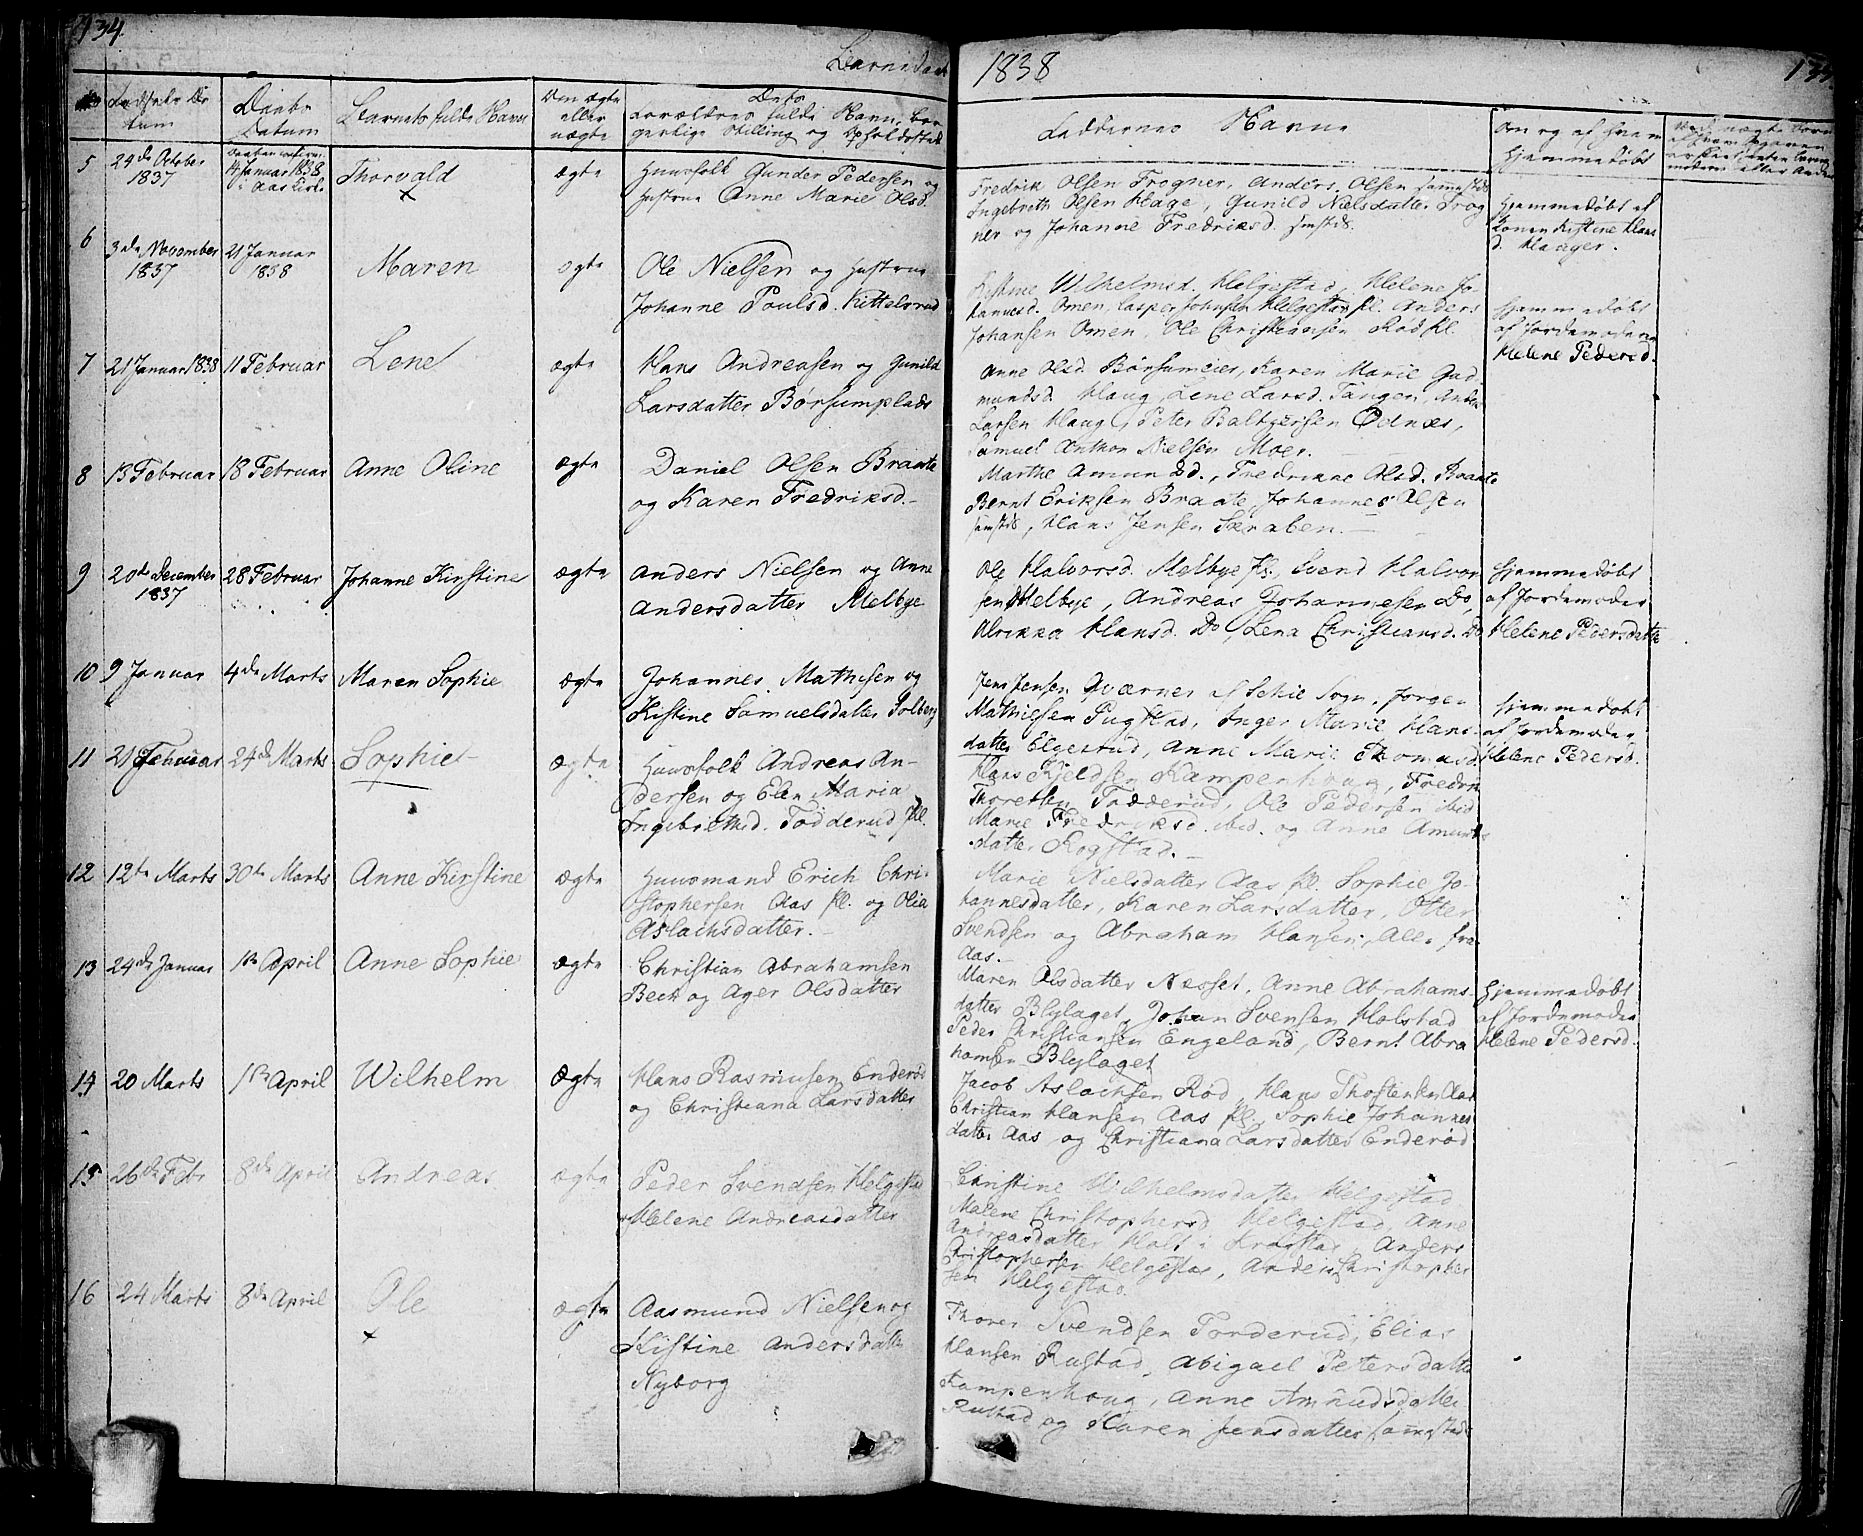 134.
Barnedaab
1838
No
Fødsels Datum
Daabs Datum
Barnets fulde Navn
Om ægte eller uægte
Dets Forældres fulde Navn, borgerlige Stilling og Opholdssted
Faddernes Navne
Om og af hvem hjemmedøbt
5
24de October 1837
14 Januar 1838 i Aas Kirke
Thorvald
ægte
Huusfolk Gunder Pedersen og
Hustrue Anne Marie Olsd.
Fredrik Olsen Frogner, Anders Olsen samesteds
Ingebreth Olsen Hage, Gunild Nielsdatter Frog
ner og Johanne Fredriksd. samstds.
Hjemmedøbt af
Konen Kistine Hans
d. Haager.
6
3de November 1837
21 Januar 1838
Maren
ægte
Ole Nielsen og Hustrue
Johanne Poulsd. Kittelsrud
Kistine Wilhelmsd. Helgestad, Helene Jo
hannesd. Omen, Casper Johnsen Helgestad pl. Anders
Johansen Omen, Ole Christiansen Rød pl.
Hjemmedøbt
af Jordemoderen
Helene Pedersd.
7
21 Januar 1838
11 Februar
Lene
ægte
Hans Andreasen og Gunild
Larsdatter Børsumplads
Anne Olsd. Børsumeier, Karen Marie Gud
mundsd. Haug, Lene Larsd. Tangen, Anders
Larsen Haug, Peter Baltzersen Ødnæs,
Samuel Anthon Nielsen Moer.
8
13 Februar
18 Februar
Anne Oline
ægte
Daniel Olsen Braate
og Karen Fredriksd.
Marthe Amundsd., Fredrikke Olsd. Braate
Bernt Eriksen Braate, Johannes Olsen
samstds, Hans Jensen Skraben.
9
20de December 1837
28 Februar
Johanne Kirstine
ægte
Anders Nielsen og Anne
Andersdatter Melbye
Ole Halvorsd. Melbye pl., Svend Halvor
sen Melbye, Andreas Johannesen Do,
Alrikka Hansd. Do, Lena Christiansd. Do
Hjemmedøbt
af Jordemoder
Helene Pedersdatter
10
9 Januar
4de Marts
Maren Sophie
ægte
Johannes Mathisen og
Kistine Samuelsdatter Solberg
Jens Jensen Qværner af Schie Sogn, Jørgen
Mathiesen Pugstad, Inger Marie Hans
datter Elgestrud, Anne Marie Thomasd.
Hjemmedøbt
af Jordemoder
Helene Pedersd.
11
21 Februar
24de Marts
Sophie
ægte
Huusfolk Andreas An-
dersen og Elen Maria
Ingebrethsd. Tødderud pl.
Hans Kjeldsen Kampenhoug, Fredrik
Thoresen Tødderud, Ole Pedersen ibid
Marie Fredriksd. ibid. og Anne Amunds
datter Rogstad.
12
12te Marts
30te Marts
Anne Kirstine
ægte
Huusmand Erich Chri-
stophersen Aas pl. og Olia
Aslachsdatter.
Marie Nielsdatter Aas pl. Sophie Jo-
hannesdatter, Karen Larsdatter, Otter
Svendsen og Abraham Hansen, Alle fra
Aas.
13
24de Januar
1ste April
Anne Sophie
ægte
Christian Abrahamsen
Beck og Ager Olsdatter
Maren Olsdatter Aasset, Anne Abrahams
datter Blylaget, Johan Svensen Holstad
Peder Christiansen Engeland, Bernt Abra
hamsen Blylaget
Hjemmedøbt
af Jordemoder
Helene Pedersd.
14
20 Marts
1ste April
Wilhelm
Ægte
Hans Rasmusen Enderød
og Christiana Larsdatter
Jacob Aslachsen Rød, Hans Thostensen Aas
Christian Hansen Aas pl., Sophie Johannes
datter Aas og Christiana Larsdatter Enderød
15
26de Febr
8de April
Andreas
ægte
Peder Svendsen Helgestad
Helene Andreasdatter
Christine Wilhelmsdatter Helgestad
Malene Christophersd. Helgestad, Anne
Andreasdatter Holt i Kragstad, Anders
Christophersen Helgestad, Anders Christopher
sen Helgestad.
16
24 Marts
8de April
Ole
ægte
Aasmund Nielsen og
Kistine Andersdatter
Nyborg
Thorer Svendsen Torderud, Elias
Hansen Rustad, Abigael Petersdatter
Kampenhoug, Anne Amundsdatter
Rustad og Karen Jensdatter sammestads